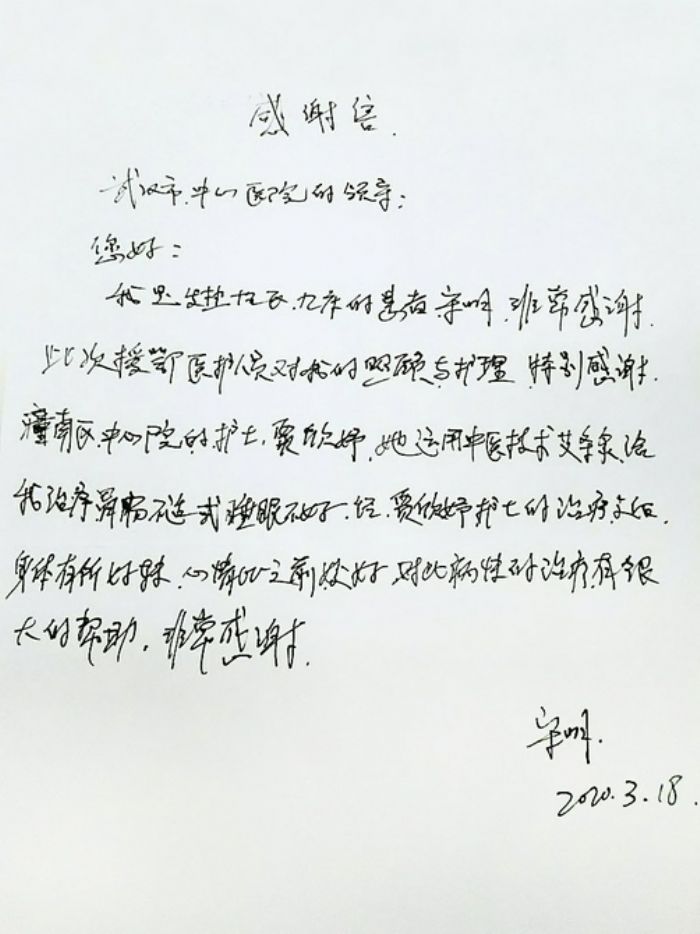 感谢信.
武汉市.中心医院的领导:
您好:
我是发热十五区.九床的患者宋明.非常感谢.
此次援鄂医护人员对我的照顾与护理 特别感谢.
潼南区.中心院的护士.贾欣妤.她运用中医技术艾条灸.给
我治疗胃肠不适或睡眠不好.经.贾欣妤护士的治疗之后.
身体有所好转.心情比之前较好.对此病情的治疗有很
大的帮助.非常感谢.
宋明.
2020.3.18.